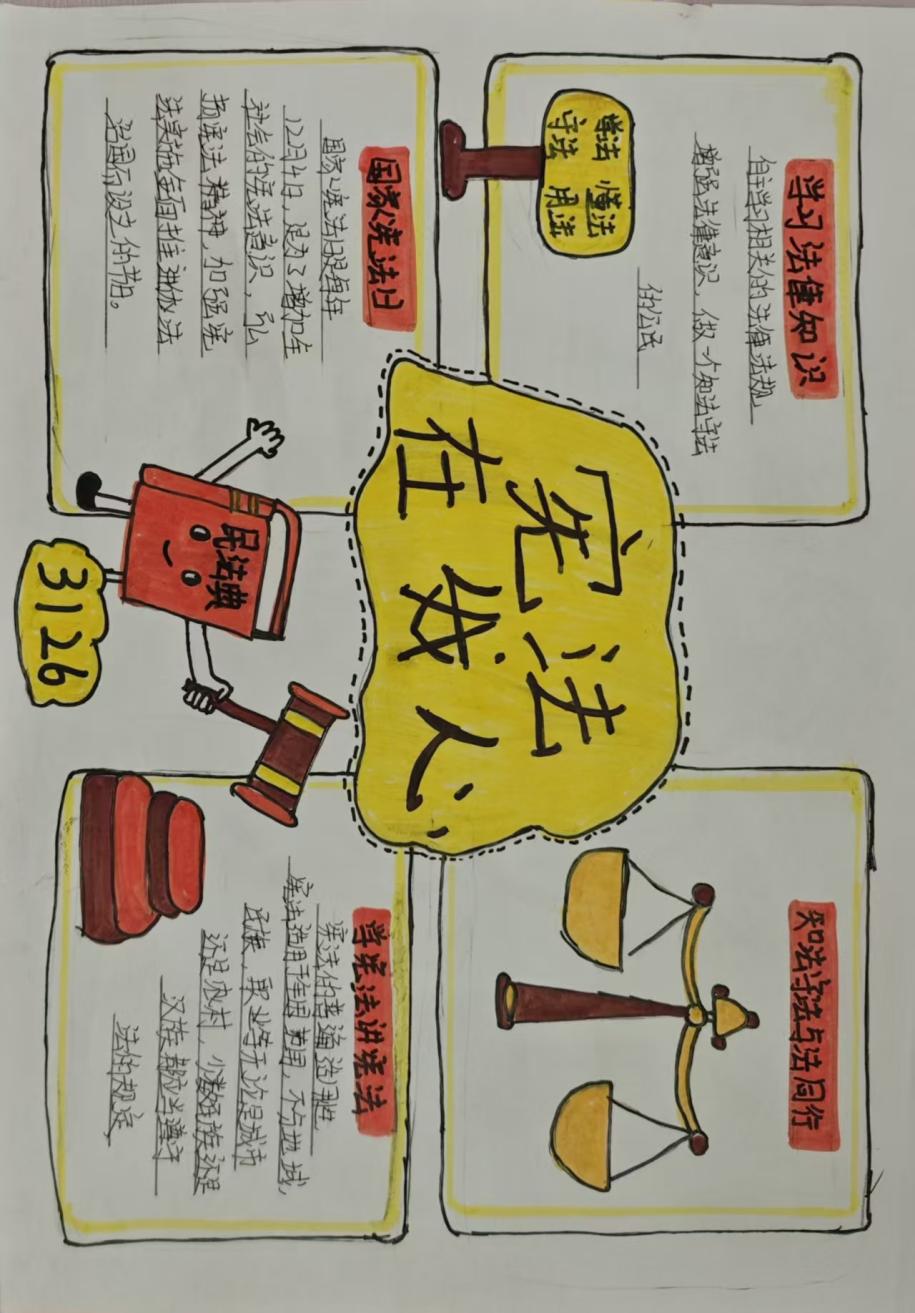 学习法律知识
自主学习相关的法律法规
增强法律意识，做一个知法守法
的公民
学法 懂法
守法 用法
知法守法与法同行
宪法
在我心
国家宪法日
国家宪法日是每年
12月4日，是为了增加全
社会的宪法意识，弘
扬宪法精神，加强宪
法实施全面推进依法
治国而设立的节日。
民法典
3126
学宪法讲宪法
宪法的普遍适用性
宪法适用于 范围，不 地域，
民族，职业等无论是城市
还是农村，少数民族还是
汉族都应当遵守
法的规定